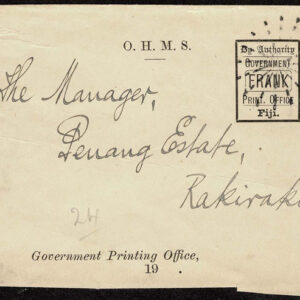 O. H. M. S.
By Authority
GOVERNMENT
FRANK
PRINT. OFFICE
Fiji.
The Manager,
Penang Estate,
Rakiraki
24
Government Printing Office,
19